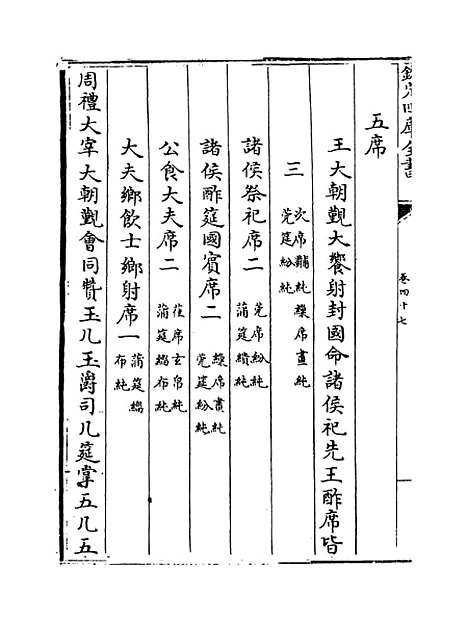 欽定四庫全書
卷四十七
五席
王大朝覲大饗射封國命諸侯祀先王酢席皆
三
次席黼純繅席畫純
莞筵紛純
諸侯祭祀席二
莞席紛純
蒲筵繢純
諸侯酢筵國賓席二
繅席畫純
莞筵紛純
公食大夫席二
萑席玄帛純
蒲筵緇布純
大夫鄉飲士鄉射席一
蒲筵緇
布純
周禮大宰大朝覲會同贊玉几玉爵司几筵掌五几五